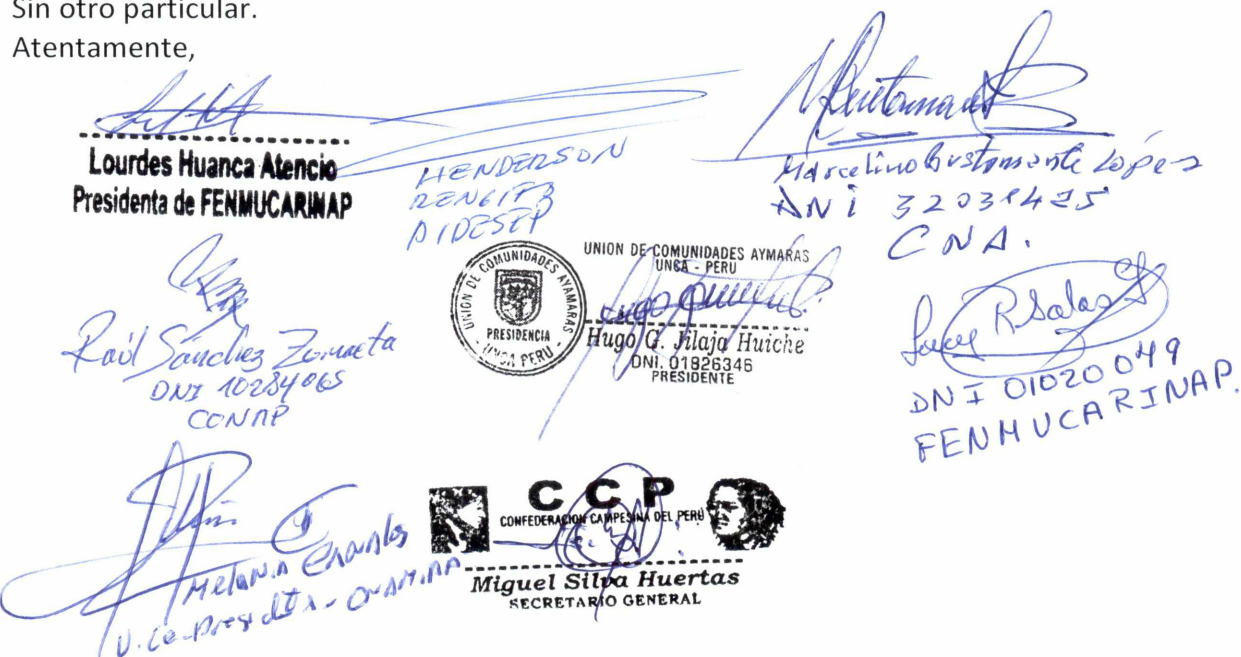 Sin otro particular.
Atentamente,
Lourdes Huanca Atencio
Presidenta de FENMUCARINAP
HENDERSON
RENGIFO
AIDESEP
Marcelino Bustamante López
DNI 32031425
CNA.
Raúl Sánchez Zumaeta
DNI 10284065
CONAP
UNION DE COMUNIDADES AYAMARAS
PRESIDENCIA
UNCA PERU
UNION DE COMUNIDADES AYMARAS
UNCA - PERU
Hugo G. Jilaja Huiche
DNI. 01826346
PRESIDENTE
R Salas
DNI 01020049
FENMUCARINAP.
Melania Canales
Vice-Presidenta - ONAMIAP
CCP
CONFEDERACION CAMPESINA DEL PERÚ
Miguel Silva Huertas
SECRETARIO GENERAL